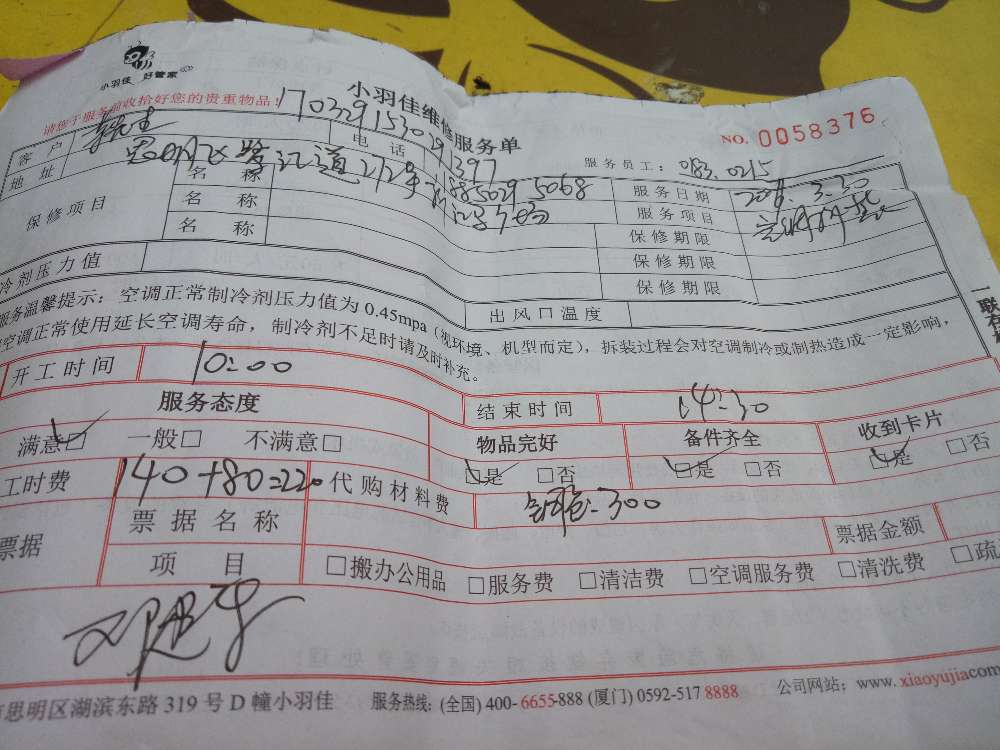 小羽佳 好管家
小羽佳维修服务单
请您于服务前收拾好您的贵重物品！
NO. 0058376
客户 电话
服务员工：083.0215
地址
服务日期 2016.3.30
保修项目 名称
服务项目
名称 保修期限
名称 保修期限
保修期限
冷剂压力值
出风口温度
服务温馨提示：空调正常制冷剂压力值为0.45mpa（视环境、机型而定），拆装过程会对空调制冷或制热造成一定影响，
空调正常使用延长空调寿命，制冷剂不足时请及时补充。
开工时间 10:00
结束时间 14:30
服务态度 物品完好 备件齐全 收到卡片
满意☑ 一般□ 不满意□ ☑是 □否 ☑是 □否 ☑是 □否
工时费 140+80=220 代购材料费 300
票据 票据名称 票据金额
项目 □搬办公用品 □服务费 □清洁费 □空调服务费 □清洗费 □疏
思明区湖滨东路319号D幢小羽佳 服务热线：(全国) 400-6655-888 (厦门) 0592-517 8888 公司网站：www.xiaoyujia.com